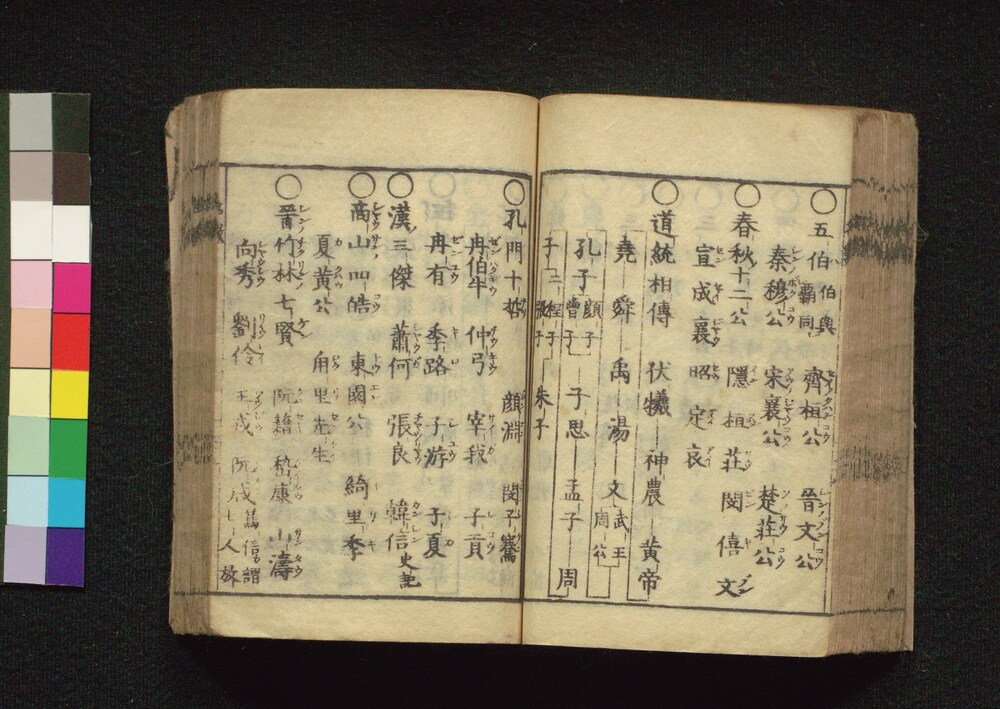 ○五伯 伯與覇同 齊桓公 晉文公
秦穆公 宋襄公 楚莊公
○春秋十二公 隱 桓 莊 閔 僖 文
宣 成 襄 昭 定 哀
○道統相傳 伏犧 神農 黃帝
堯 舜 禹 湯 文 武王 周公
孔子 顔子 曾子 子思 孟子 周
子 二程子 張子 朱子
○孔門十哲 顔淵 閔子騫
冉伯牛 仲弓 宰我 子貢
冉有 季路 子游 子夏
○漢三傑 蕭何 張良 韓信 史記
○商山四皓 東園公 綺里季
夏黃公 甪里先生
○晉竹林七賢 阮籍 嵆康 山濤
向秀 劉伶 王戎 阮咸 七人